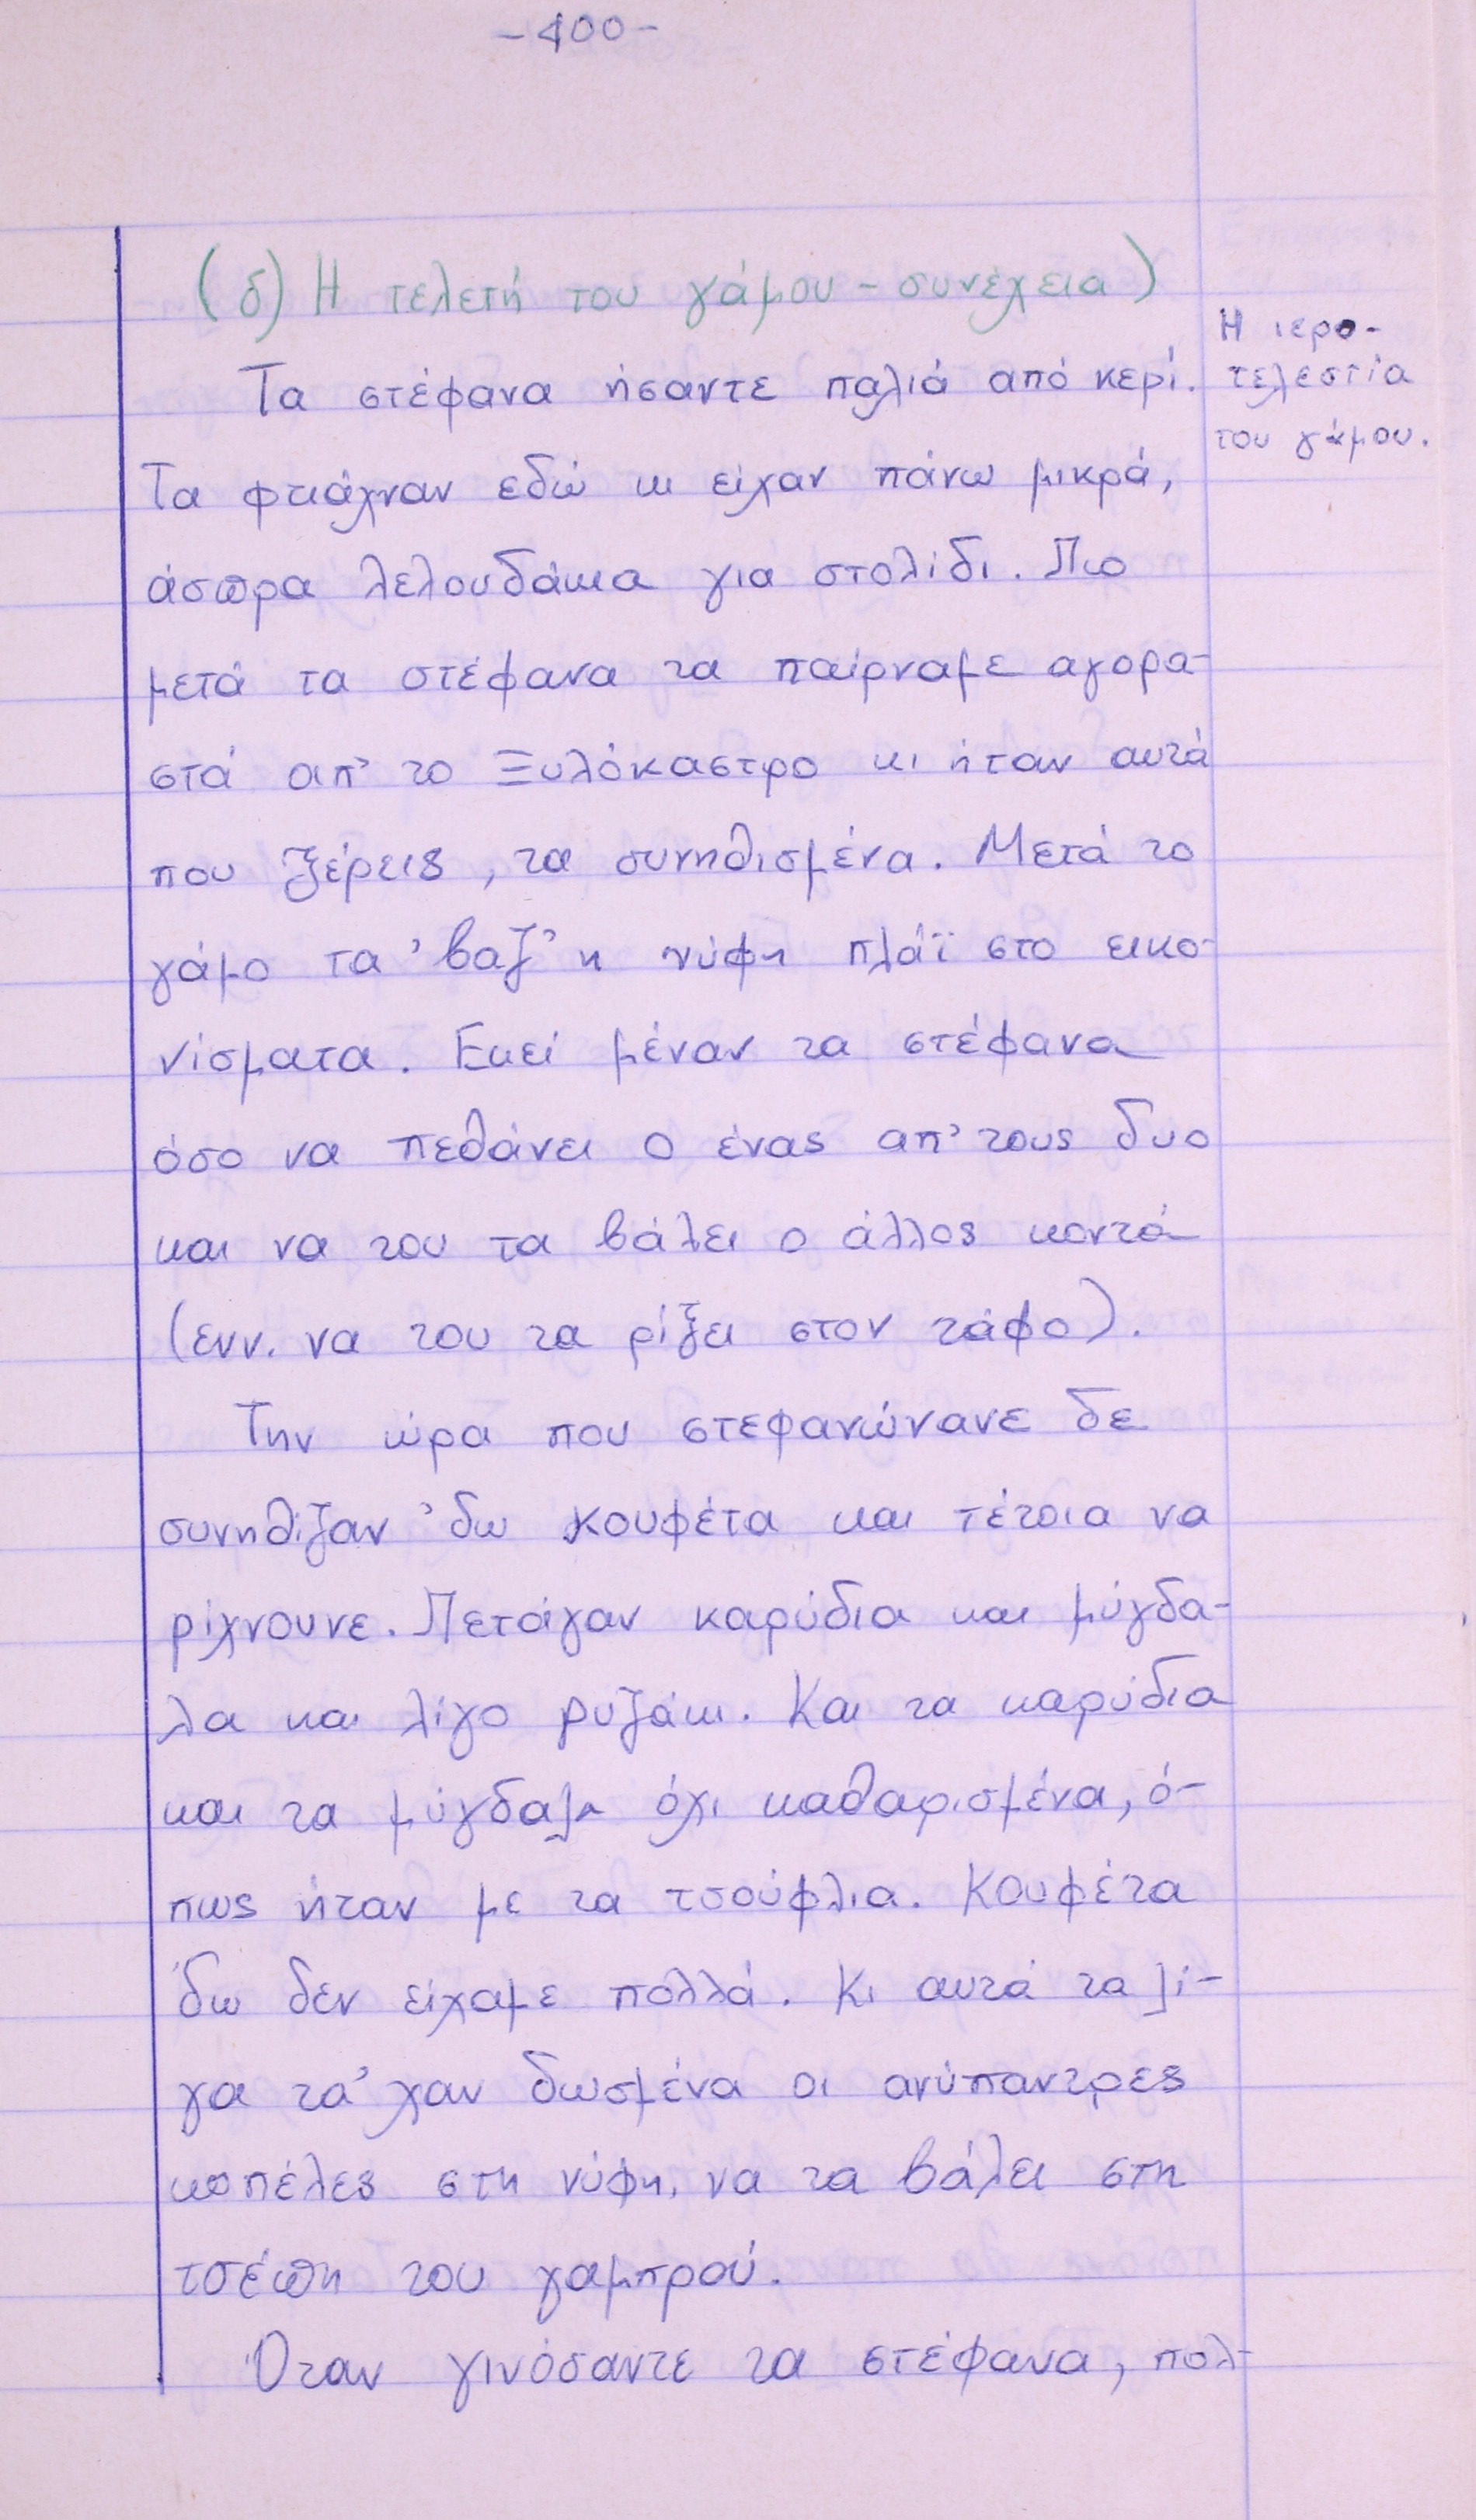 -400-
(δ) Η τελετή του γάμου - συνέχεια)
Η ιερο-
τελεστία
του γάμου.
Τα στέφανα ήσαντε παλιά από κερί.
Τα φτιάχναν εδώ κι είχαν πάνω μικρά,
άσπρα λελουδάκια για στολίδι. Πιο
μετά τα στέφανα τα παίρναμε αγορα-
στά απ' το Ξυλόκαστρο κι ήταν αυτά
που ξέρεις, τα συνηθισμένα. Μετά το
γάμο τα 'βαζ' η νύφη πλάϊ στο εικο-
νίσματα. Εκεί μέναν τα στέφανα
όσο να πεθάνει ο ένας απ' τους δυο
και να του τα βάλει ο άλλος κοντά
(ενν. να του τα ρίξει στον τάφο).
Την ώρα που στεφανώνανε δε
συνηθίζαν 'δω κουφέτα και τέτοια να
ρίχνουνε. Πετάγαν καρύδια και μύγδα-
λα και λίγο ρυζάκι. Και τα καρύδια
και τα μύγδαλα όχι καθαρισμένα, ό-
πως ήταν με τα τσούφλια. Κουφέτα
'δω δεν είχαμε πολλά. Κι αυτά τα λί-
γα τα' χαν δωσμένα οι ανύπαντρες
κοπέλες στη νύφη, να τα βάλει στη
τσέπη του γαμπρού.
Όταν γινόσαντε τα στέφανα, πολ-